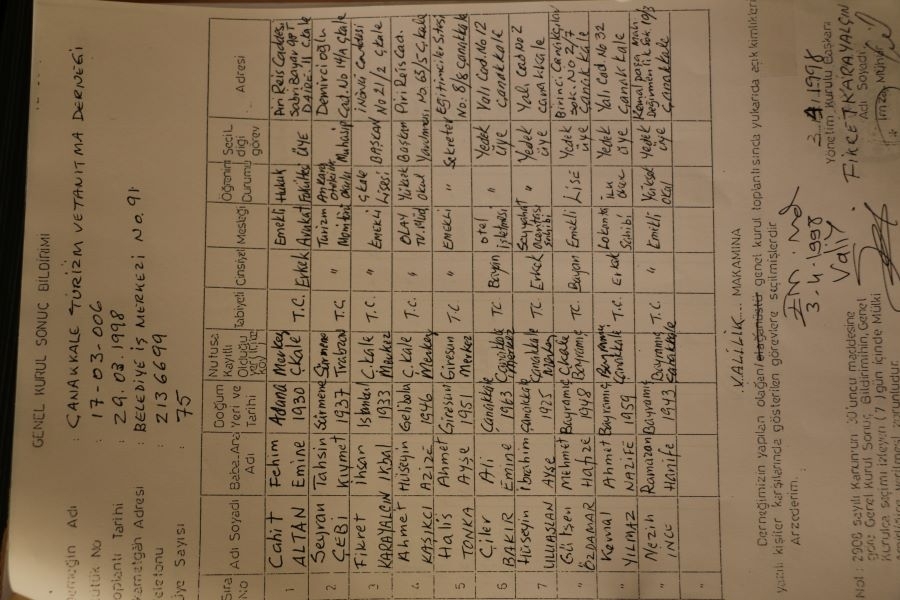 GENEL KURUL SONUÇ BİLDİRİMİ
Adı : ÇANAKKALE TURİZM VE TANITMA DERNEĞİ
No : 17-03-006
Tarihi : 29.03.1998
Adresi : BELEDİYE İŞ MERKEZİ No. 91
: 2136699
Sayısı 75
Sıra No Adı Soyadı Baba-Ana Adı Doğum Yeri ve Tarihi Nüfusa Kayıtlı Olduğu Tabiyeti Cinsiyeti Mesleği Öğrenim Durumu Seçildiği görev Adresi
1 Cahit ALTAN Fehim Emine Adana 1930 Merkez Ç.kale T.C. Erkek Emekli Avukat Hukuk Fakültesi ÜYE Piri Reis Caddesi
2 Seyran ÇEBİ Tahsin Kıymet Sürmene 1937 Sürmene Trabzon T.C. " Turizm Muhasip Demircioğlu Cad. No 141/A Ç.kale
3 Fikret KARAYALÇIN İhsan İkbal İstanbul 1933 Ç.kale Merkez T.C. " EMEKLİ Ç.kale Lisesi BAŞKAN İnönü Caddesi No 21/2 Ç.kale
4 Ahmet KAŞIKÇI Hüseyin Azize Gelibolu 1946 Ç.kale Merkez T.C. " OLAY TV. Müd. Yüksek Okul Başkan Yardımcısı Piri Reis Cad. No. 63/5 Ç.kale
5 Halis TONKA Ahmet Ayşe Giresun 1951 Giresun Merkez T.C. " EMEKLİ " Sekreter Eğitimciler Sitesi No. 8/8 Çanakkale
6 Çiler BAKIR Ali Emine Çanakkale 1963 Çanakkale Merkez TC Bayan Otel İşletmesi " Yedek üye Yalı Cad. No 12 Çanakkale
7 Hüseyin ULUASLAN İbrahim Ayşe Çanakkale 1925 Çanakkale Merkez TC Erkek Seyyahat Acentası Sahibi " Yedek üye Yalı Cad No 2 Çanakkale
" Gülşen ÖZDAMAR Mehmet Hafize Bayramiç 1948 Ç.kale Bayramiç TC. Bayan Emekli LİSE Yedek üye Sok. No 2/7 Çanakkale
" Kemal YILMAZ Ahmet NAZİFE Bayramiç 1959 Bayramiç Çanakkale T.C. Erkek Lokanta Sahibi İLK Yedek üye Yalı Cad. No 32 Çanakkale
" Nezih İNCE Ramazan Hanife Bayramiç 1943 Bayramiç Çanakkale " Emekli Yüksek Okul Yedek üye Kemal paşa Mah. Çanakkale
"
VALİLİK... MAKAMINA
Derneğimizin yapılan olağan/olağanüstü genel kurul toplantısında yukarıda açık kimlikleri
yazılı kişiler karşılarında gösterilen görevlere seçilmişlerdir.
Arzederim.
3.4.1998
Yönetim Kurulu Başkanı
Adı Soyadı
FİKRET KARAYALÇIN
İmza Mühür
3.4.1998
Valiy
Not : 2908 sayılı Kanun'un 30'uncu maddesine
göre Genel Kurul Sonuç Bildiriminin, Genel
Kurulca seçimi izleyen (7) gün içinde Mülki
zorunludur.